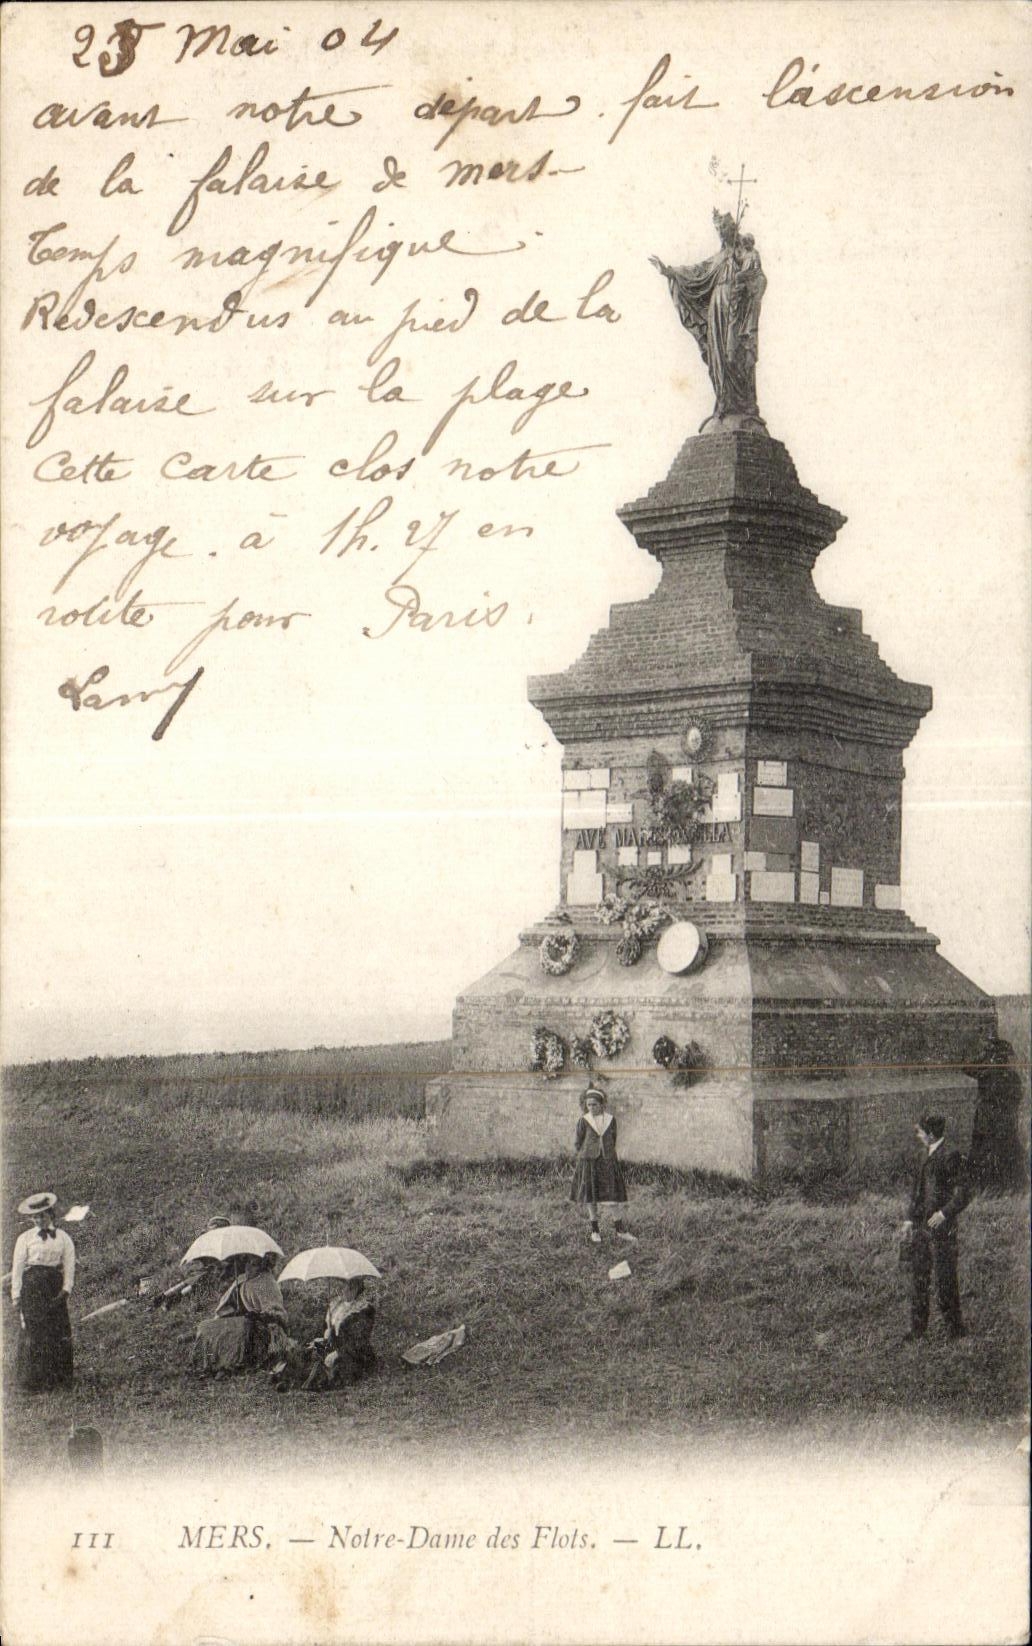 25 Mai 04
avant notre départ. fait l'áscension
de la falaise de Mers.
Temps magnifique.
Redescendus au pied de la
falaise sur la plage
Cette carte clos notre
voyage. à 1h. 27 en
route pour Paris.
Lamy
AVE MARIS STELLA
111 MERS. — Notre-Dame des Flots. — LL.